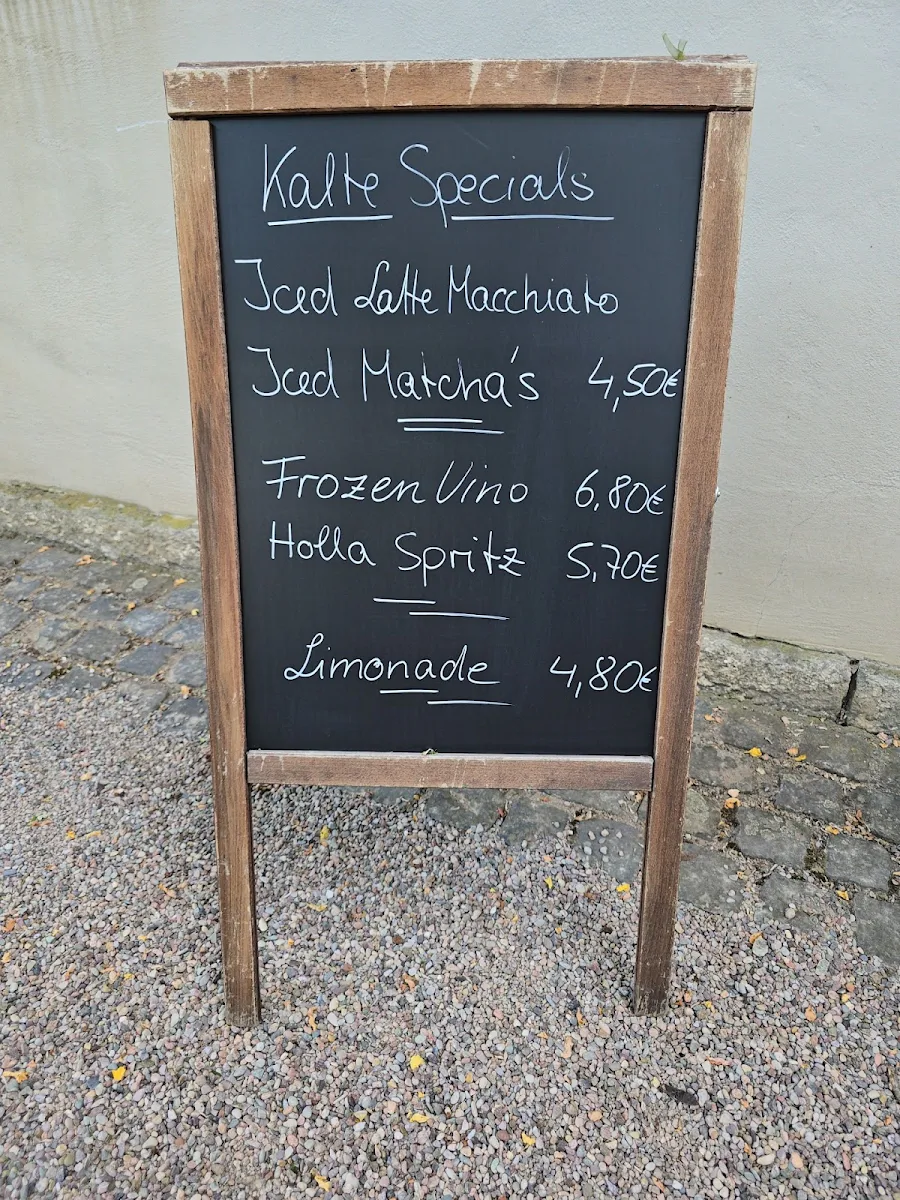 Kalte Specials
Iced Latte Macchiato
Iced Matcha's 4,50€
Frozen Vino 6,80€
Holla Spritz 5,70€
Limonade 4,80€